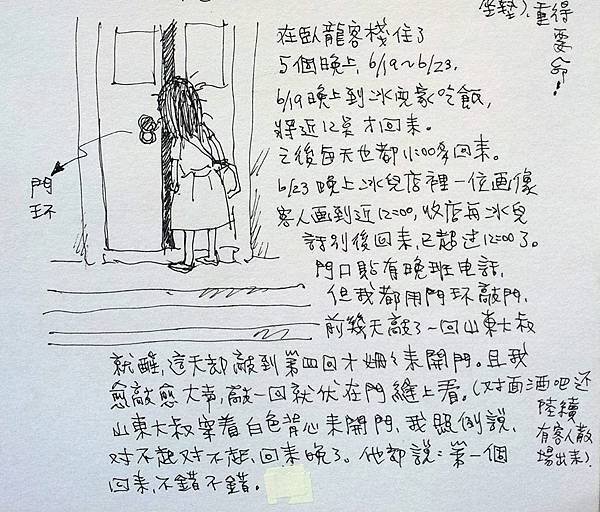 坐墊),重得
要命!
在臥龍客棧住了
5個晚上,6/19~6/23.
6/19晚上到冰兒家吃飯,
將近12點才回來.
之後每天也都11:00多回來.
6/23晚上冰兒店裡一位画像
客人画到近12:00,收店与冰兒
話別後回來,已超过12:00了.
門口貼有晚班电話,
但我都用門环敲門,
前幾天敲了一回山東大叔
就醒,這天卻敲到第四回才姍々來開門.且我
愈敲愈大声,敲一回就伏在門縫上看.(对面酒吧还
陸續
有客人散
場出來).
山東大叔穿着白色背心來開門,我照例說,
对不起对不起,回來晚了.他都說:第一個
回來,不錯不錯.
門
环